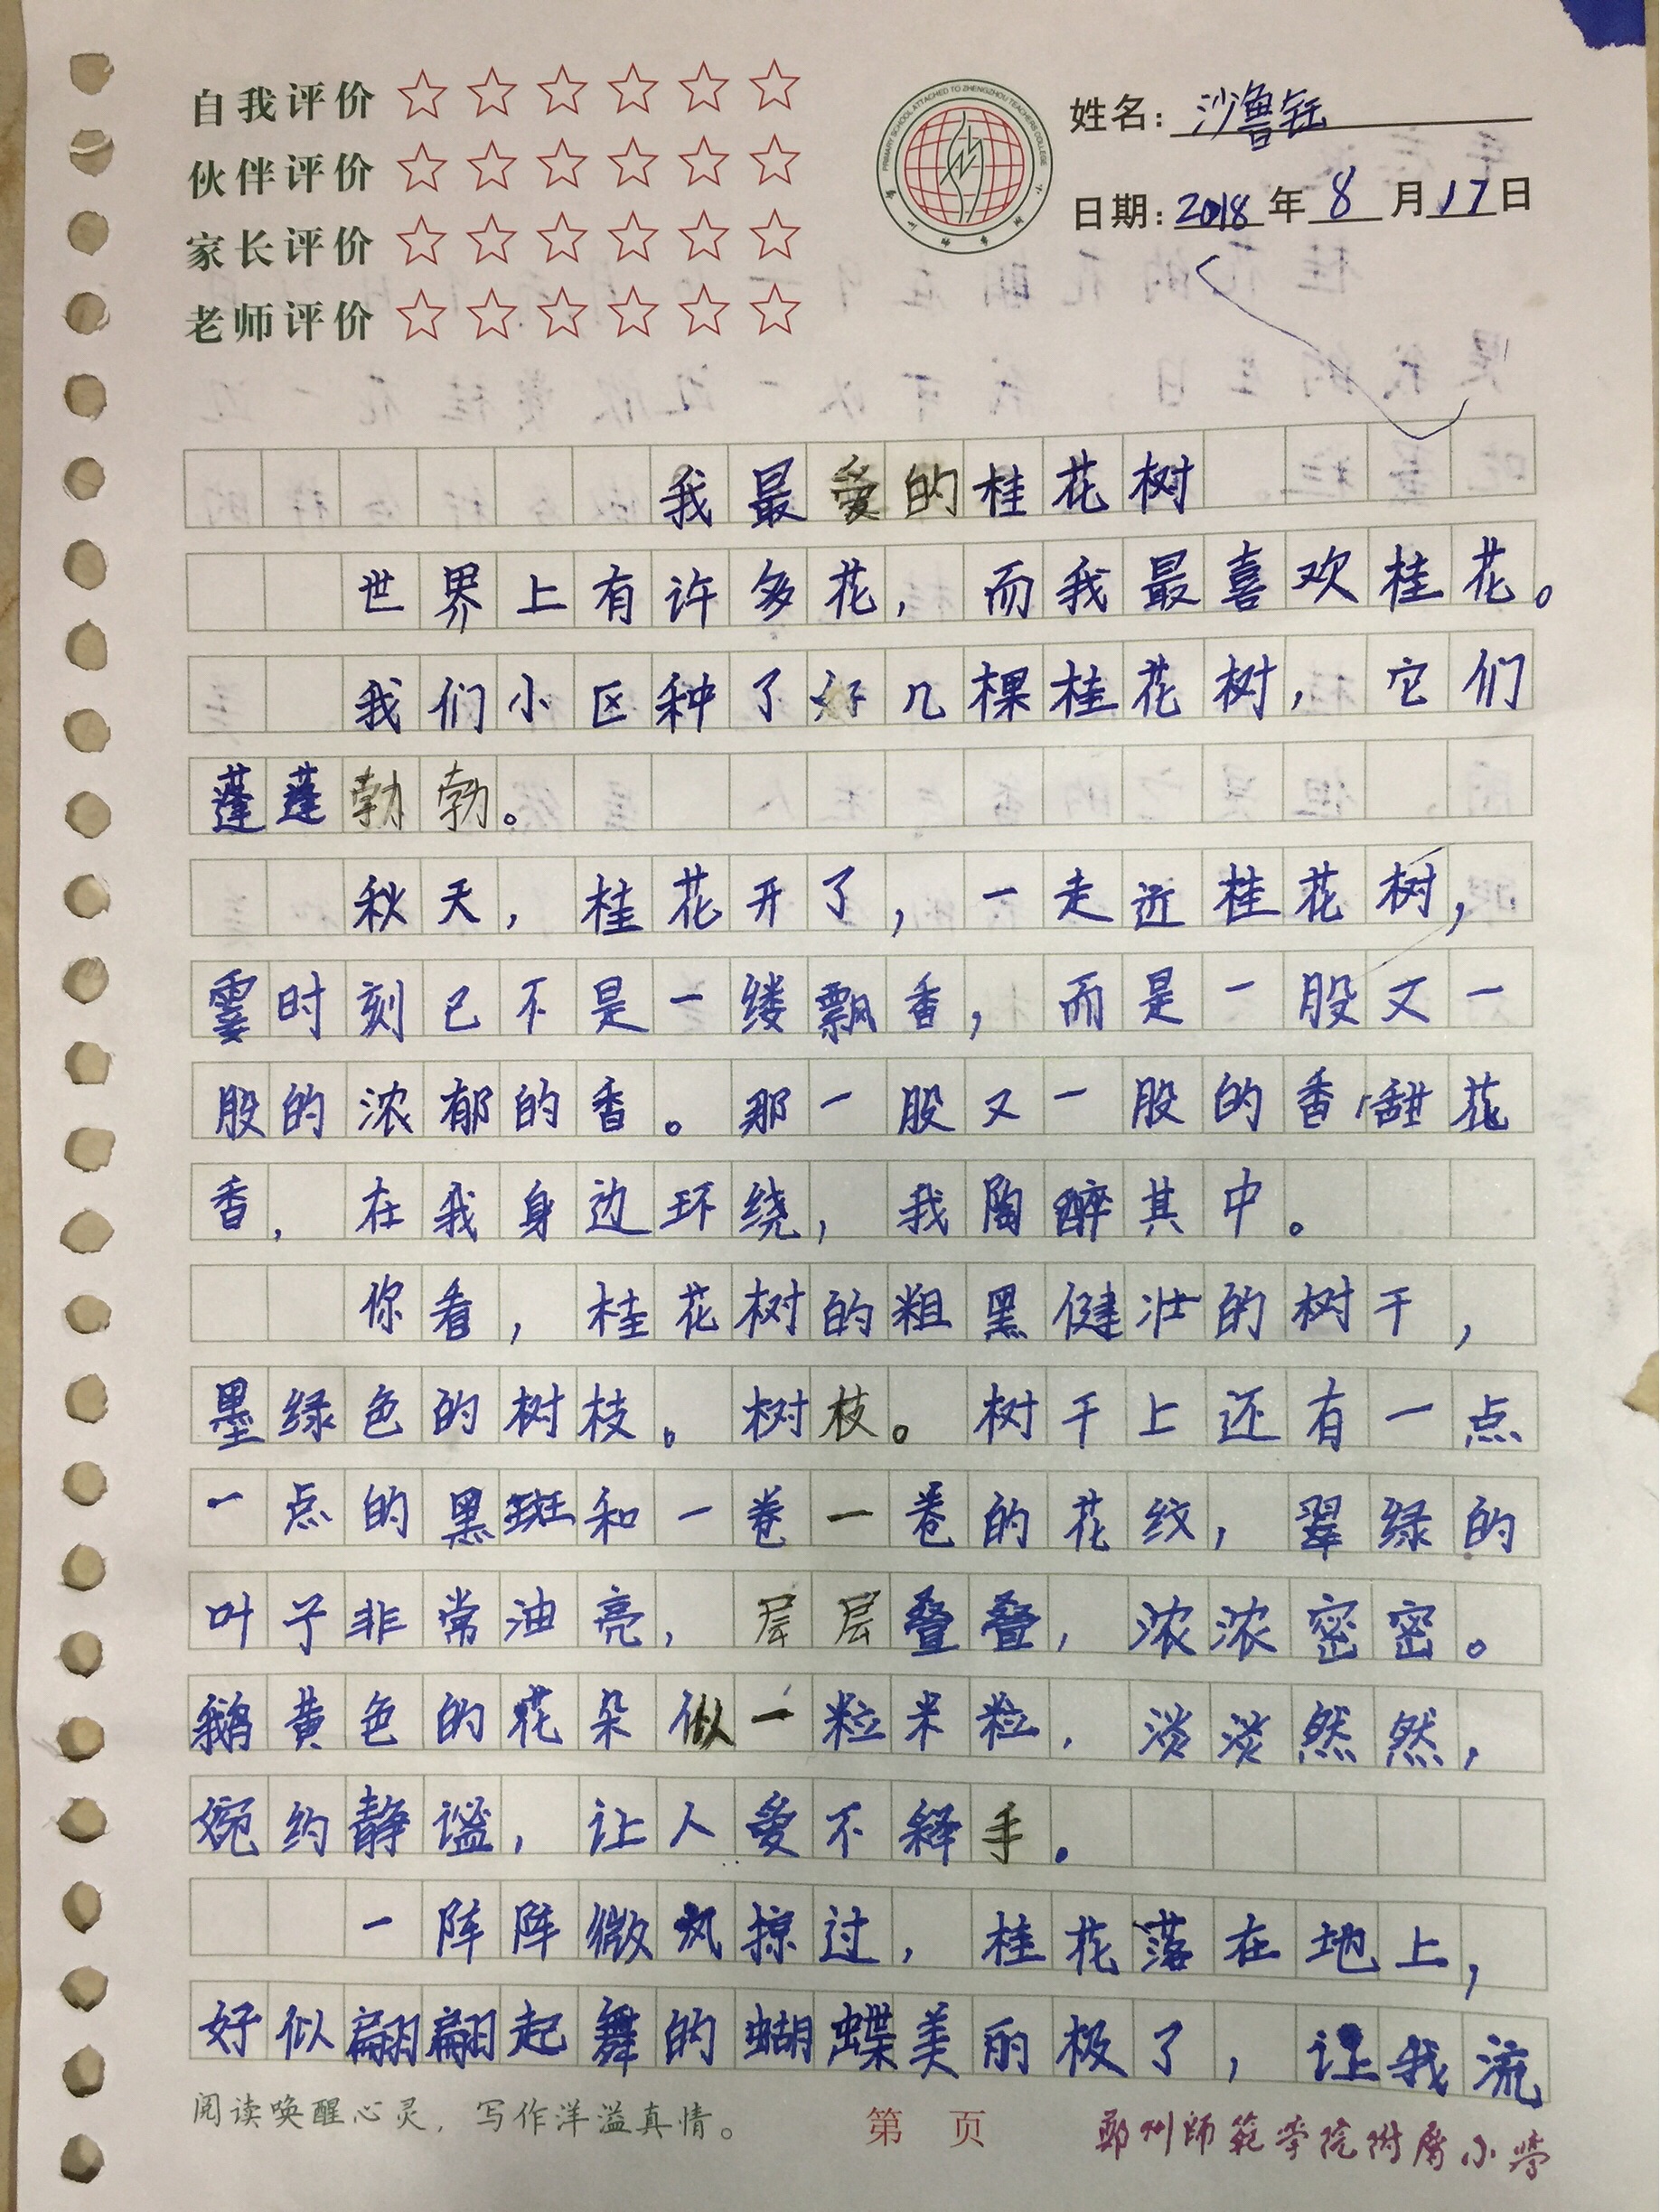 自我评价
伙伴评价
家长评价
老师评价
PRIMARY SCHOOL ATTACHED TO ZHENGZHOU TEACHERS COLLEGE
姓名: 沙鲁钰
日期: 2018 年 8 月 17 日
我最爱的桂花树
世界上有许多花，而我最喜欢桂花。
我们小区种了好几棵桂花树，它们
蓬蓬勃勃。
秋天，桂花开了，一走近桂花树，
霎时刻已不是一缕飘香，而是一股又一
股的浓郁的香。那一股又一股的香甜花
香，在我身边环绕，我陶醉其中。
你看，桂花树的粗黑健壮的树干，
墨绿色的树枝。树枝。树干上还有一点
一点的黑斑和一卷一卷的花纹，翠绿的
叶子非常油亮，层层叠叠，浓浓密密。
鹅黄色的花朵似一粒米粒，淡淡然然，
婉约静谧，让人爱不释手。
一阵阵微风掠过，桂花落在地上，
好似翩翩起舞的蝴蝶美丽极了，让我流
阅读唤醒心灵，写作洋溢真情。
第 页
郑州师范学院附属小学